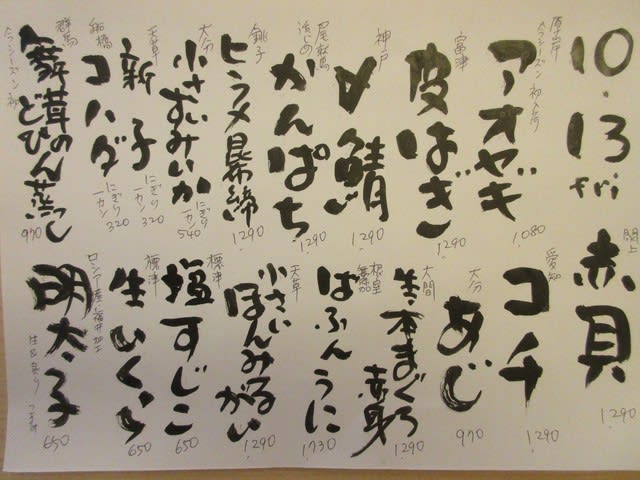 10.13
fri
厚岸
今シーズン初入荷
アオヤギ
1.080
富津
皮はぎ
1.290
神戸
〆鯖
1.290
尾鷲
かんぱち
1.290
銚子
ヒラメ昆布締
1.290
大分
小さいすみいか
にぎり
一カン
540
天草
新子
にぎり
一カン
320
船橋
コハダ
にぎり
一カン
320
群馬
今シーズン初
舞茸のどびん蒸し
970
閖上
赤貝
1.290
愛知
コチ
1.290
大分
あじ
970
大間
生・本まぐろ赤身
1.290
根室
はふんうに
1.730
天草
小さいほんみるがい
1.290
標津
塩すじこ
650
標津
生いくら
650
ロシア産・福井加工
明太子
650